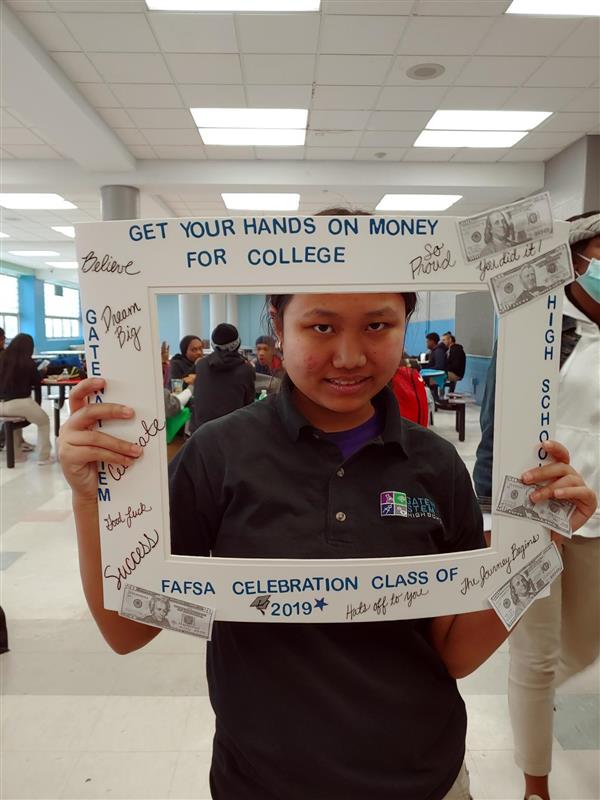 GET YOUR HANDS ON MONEY
FOR COLLEGE
So
Proud
You did it!
Believe
Dream
Big
GATEWAY STEM
HIGH SCHOOL
Celebrate
Good luck
Success
GATEW
STEM
HIGH SCHO
FAFSA CELEBRATION CLASS OF
2019
Hats off to you
The Journey Begins